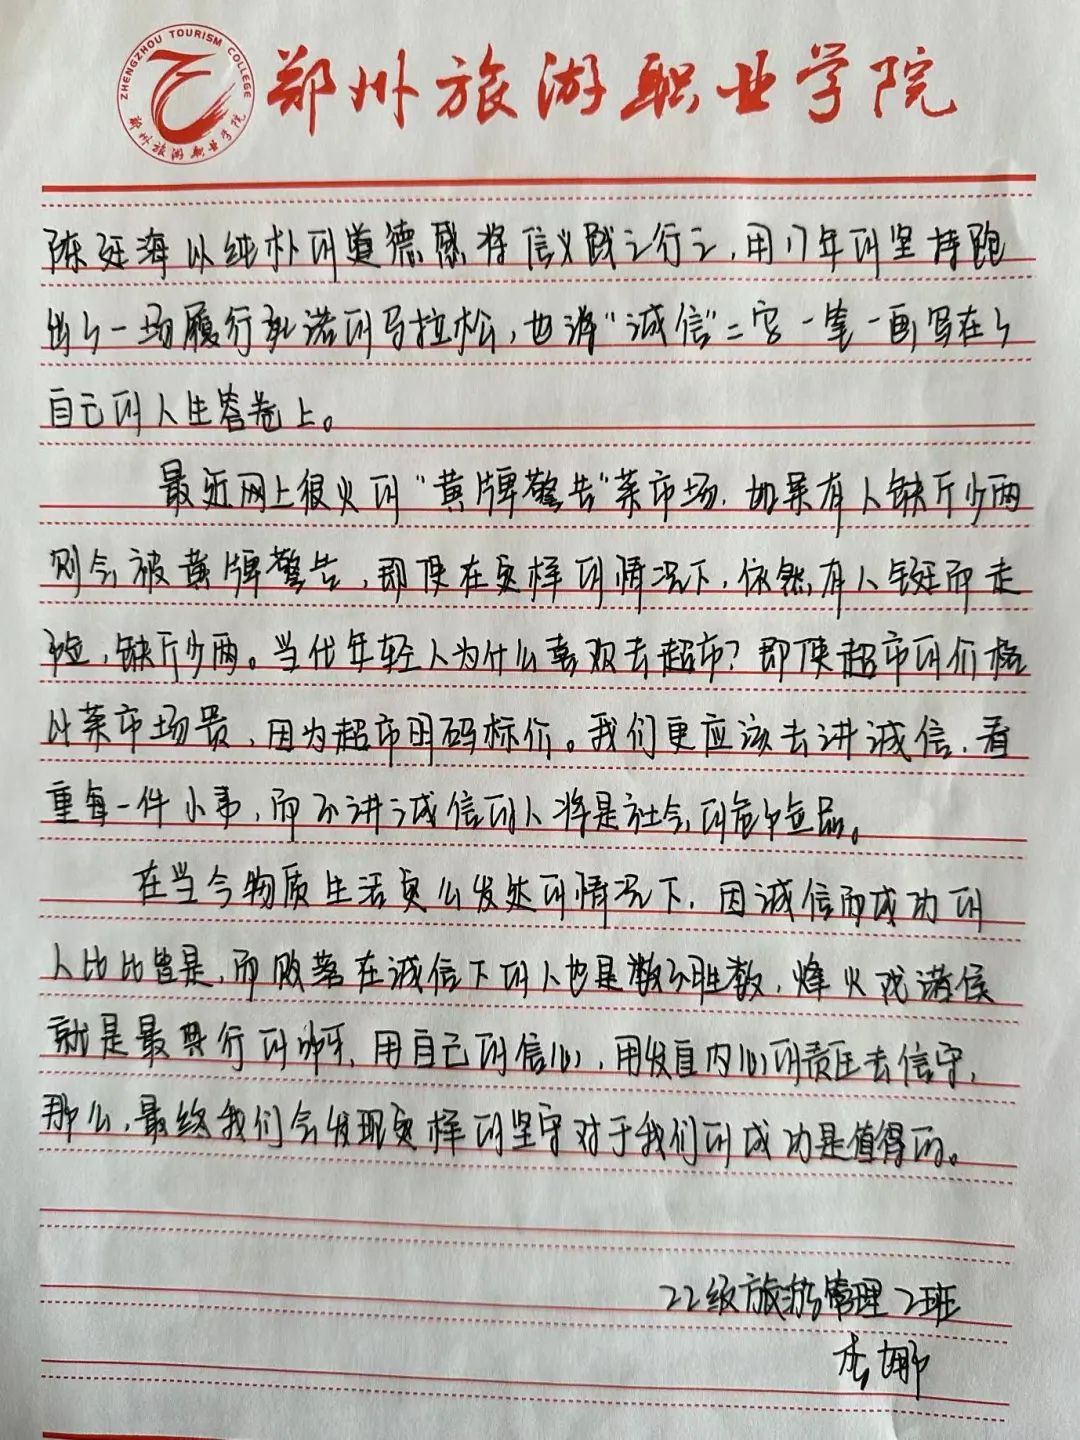 ZHENGZHOU TOURISM COLLEGE
郑州旅游职业学院
郑州旅游职业学院
陈廷海以纯朴的道德感将信义践之行之，用17年的坚持跑
出了一场履行承诺的马拉松，也将“诚信”二字一笔一画写在了
自己的人生答卷上。
最近网上很火的“黄牌警告”菜市场，如果有人缺斤少两
则会被黄牌警告，即使在这样的情况下，依然有人铤而走
险，缺斤少两。当代年轻人为什么喜欢去超市？即使超市的价格
比菜市场贵，因为超市明码标价。我们更应该去讲诚信，看
重每一件小事，而不讲诚信的人将是社会的危险品。
在当今物质生活这么发达的情况下，因诚信而成功的
人比比皆是，而败落在诚信下的人也是数不胜数，烽火戏诸侯
就是最典行的例子，用自己的信心，用发自内心的责任去信守，
那么，最终我们会发现这样的坚守对于我们的成功是值得的。
22级旅游管理2班
李娜